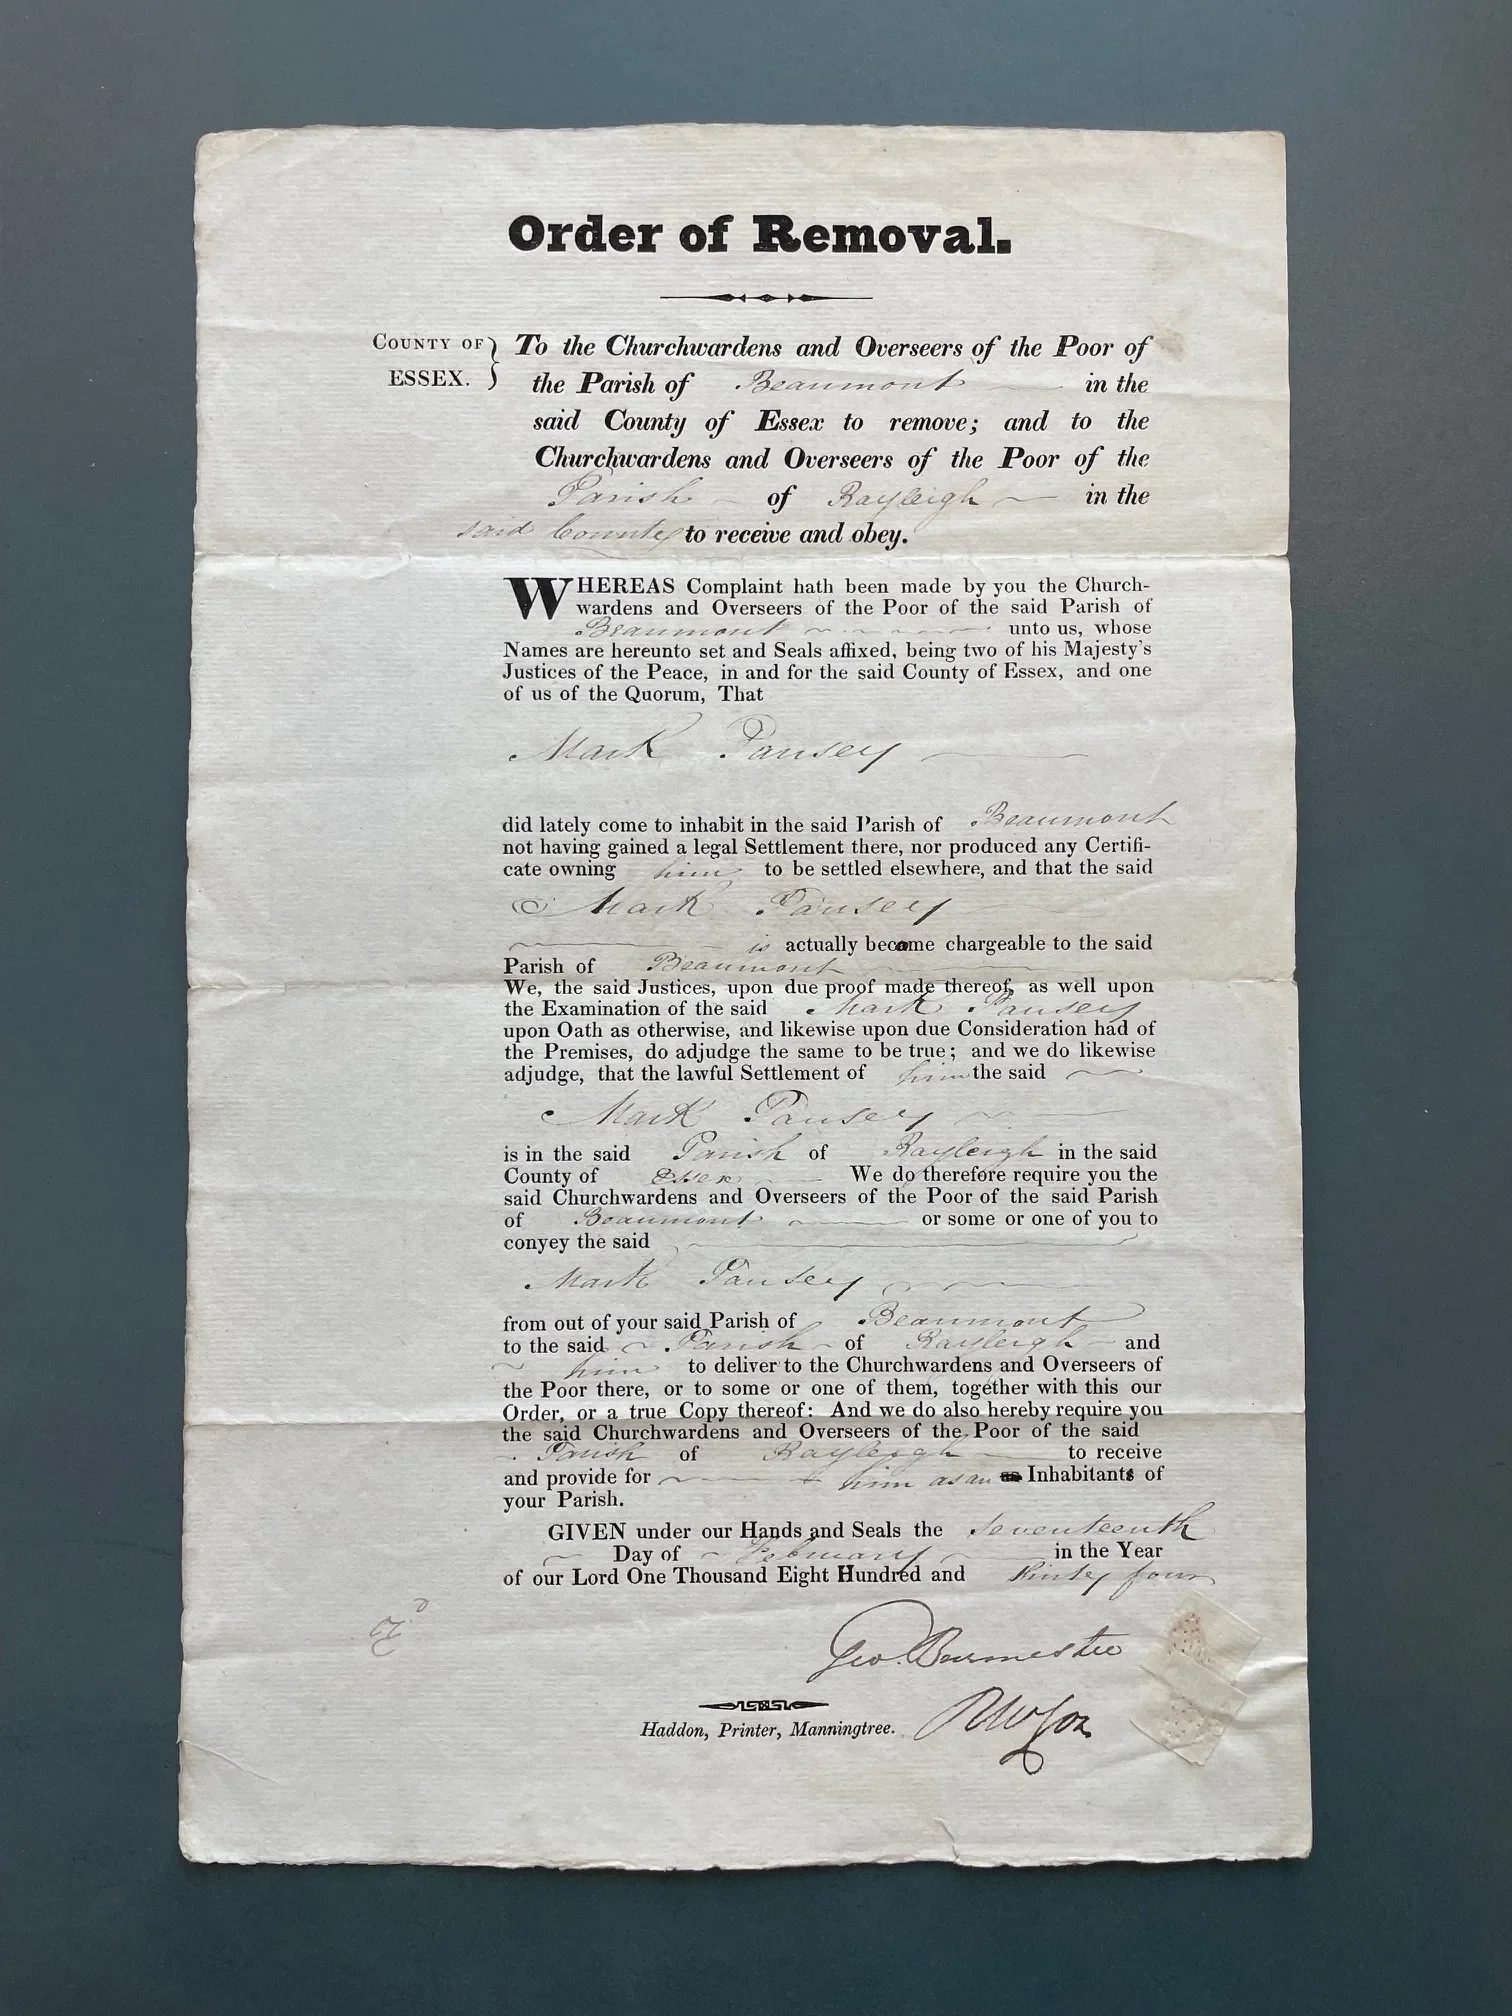 Order of Removal.
COUNTY OF
ESSEX.
To the Churchwardens and Overseers of the Poor of
the Parish of Beaumont in the
said County of Essex to remove; and to the
Churchwardens and Overseers of the Poor of the
Parish of Rayleigh in the
said County to receive and obey.
WHEREAS Complaint hath been made by you the Church-
wardens and Overseers of the Poor of the said Parish of
Beaumont unto us, whose
Names are hereunto set and Seals affixed, being two of his Majesty's
Justices of the Peace, in and for the said County of Essex, and one
of us of the Quorum, That
Mark Pansey
did lately come to inhabit in the said Parish of Beaumont
not having gained a legal Settlement there, nor produced any Certifi-
cate owning him to be settled elsewhere, and that the said
Mark Pansey
is actually become chargeable to the said
Parish of Beaumont
We, the said Justices, upon due proof made thereof, as well upon
the Examination of the said Mark Pansey
upon Oath as otherwise, and likewise upon due Consideration had of
the Premises, do adjudge the same to be true; and we do likewise
adjudge, that the lawful Settlement of him the said
Mark Pansey
is in the said Parish of Rayleigh in the said
County of Essex We do therefore require you the
said Churchwardens and Overseers of the Poor of the said Parish
of Beaumont or some or one of you to
conyey the said
Mark Pansey
from out of your said Parish of Beaumont
to the said Parish of Rayleigh and
him to deliver to the Churchwardens and Overseers of
the Poor there, or to some or one of them, together with this our
Order, or a true Copy thereof: And we do also hereby require you
the said Churchwardens and Overseers of the Poor of the said
Parish of Rayleigh to receive
and provide for him as an Inhabitants of
your Parish.
GIVEN under our Hands and Seals the seventeenth
Day of February in the Year
of our Lord One Thousand Eight Hundred and thirty four
Geo. Burmester
RWCox
Haddon, Printer, Manningtree.